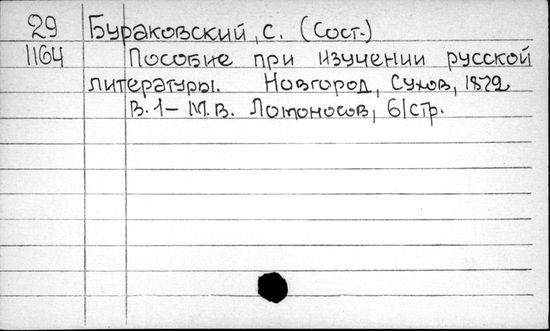 29 Бураковский, С. (Сост.)
1164 Пособие при изучении русской
литературы. Новгород, Сухов, 1872
В. 1 – М. В. Ломоносов, 61стр.